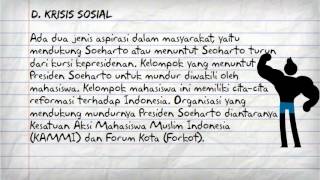 D. KRISIS SOSIAL
Ada dua jenis aspirasi dalam masyarakat yaitu
mendukung Soeharto atau menuntut Seoharto turun
dari kursi kepresidenan. Kelompok yang menuntut
Presiden Soeharto untuk mundur diwakili oleh
mahasiswa. Kelompok mahasiswa ini memiliki cita-cita
reformasi terhadap Indonesia. Organisasi yang
mendukung mundurnya Presiden Soeharto diantaranya
Kesatuan Aksi Mahasiswa Muslim Indonesia
(KAMMI) dan Forum Kota (Forkot).